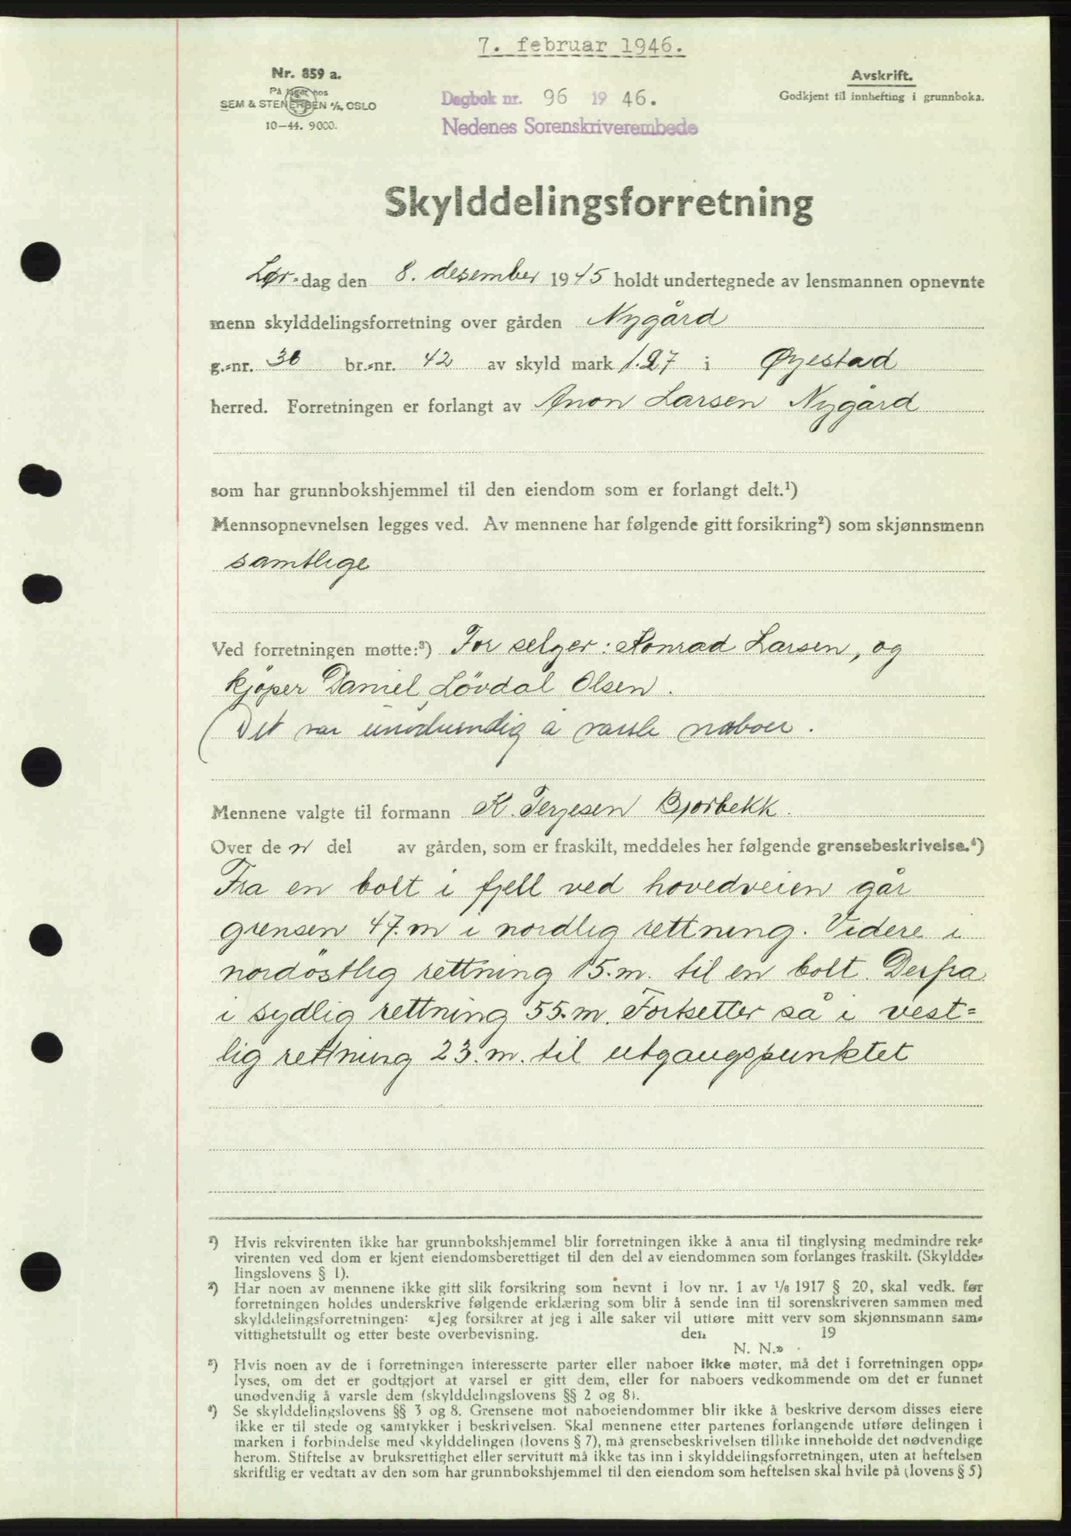 7. februar 1946.
Nr. 859 a.
På lager hos
SEM & STENERSEN A/S, OSLO
10-44. 9000.
Dagbok nr. 96 1946.
Nedenes Sorenskriverembede
Avskrift.
Godkjent til innhefting i grunnboka.
Skylddelingsforretning
Lør-dag den 8. desember 1945 holdt undertegnede av lensmannen opnevnte
menn skylddelingsforretning over gården Nygård
g.-nr. 36 br.-nr. 42 av skyld mark 1.27 i Øyestad
herred. Forretningen er forlangt av Anon Larsen Nygård
som har grunnbokshjemmel til den eiendom som er forlangt delt.¹)
Mennsopnevnelsen legges ved. Av mennene har følgende gitt forsikring²) som skjønnsmenn
samtlige
Ved forretningen møtte:³) For selger: Konrad Larsen, og
kjöper Daniel Lövdal Olsen.
(Det var unödvendig å varsle naboer.
Mennene valgte til formann K. Terjesen Bjorbekk.
Over den del av gården, som er fraskilt, meddeles her følgende grensebeskrivelse.⁴)
Fra en bolt i fjell ved hovedveien går
grensen 47.m i nordlig rettning. Videre i
nordöstlig rettning 15.m. til en bolt. Derfra
i sydlig rettning 55.m. Fortsetter så i vest-
lig rettning 23.m. til utgangspunktet
¹) Hvis rekvirenten ikke har grunnbokshjemmel blir forretningen ikke å anta til tinglysing medmindre rek-
virenten ved dom er kjent eiendomsberettiget til den del av eiendommen som forlanges fraskilt. (Skyldde-
lingslovens § 1).
²) Har noen av mennene ikke gitt slik forsikring som nevnt i lov nr. 1 av 1/6 1917 § 20, skal vedk. før
forretningen holdes underskrive følgende erklæring som blir å sende inn til sorenskriveren sammen med
skylddelingsforretningen: «Jeg forsikrer at jeg i alle saker vil utføre mitt verv som skjønnsmann sam-
vittighetsfullt og etter beste overbevisning. den 19
N. N.»
³) Hvis noen av de i forretningen interesserte parter eller naboer ikke møter, må det i forretningen opp-
lyses, om det er godtgjort at varsel er gitt dem, eller for naboers vedkommende om det er funnet
unødvendig å varsle dem (skylddelingslovens §§ 2 og 8).
⁴) Se skylddelingslovens §§ 3 og 8. Grensene mot naboeiendommer blir ikke å beskrive dersom disses eiere
ikke er til stede og samtykker i beskrivelsen. Skal mennene etter partenes forlangende utføre delingen i
marken i forbindelse med skylddelingen (lovens § 7), må grensebeskrivelsen tillike inneholde det nødvendige
herom. Stiftelse av bruksrettighet eller servitutt må ikke tas inn i skylddelingsforretningen, uten at heftelsen
skriftlig er vedtatt av den som har grunnbokshjemmel til den eiendom som heftelsen skal hvile på (lovens § 5)